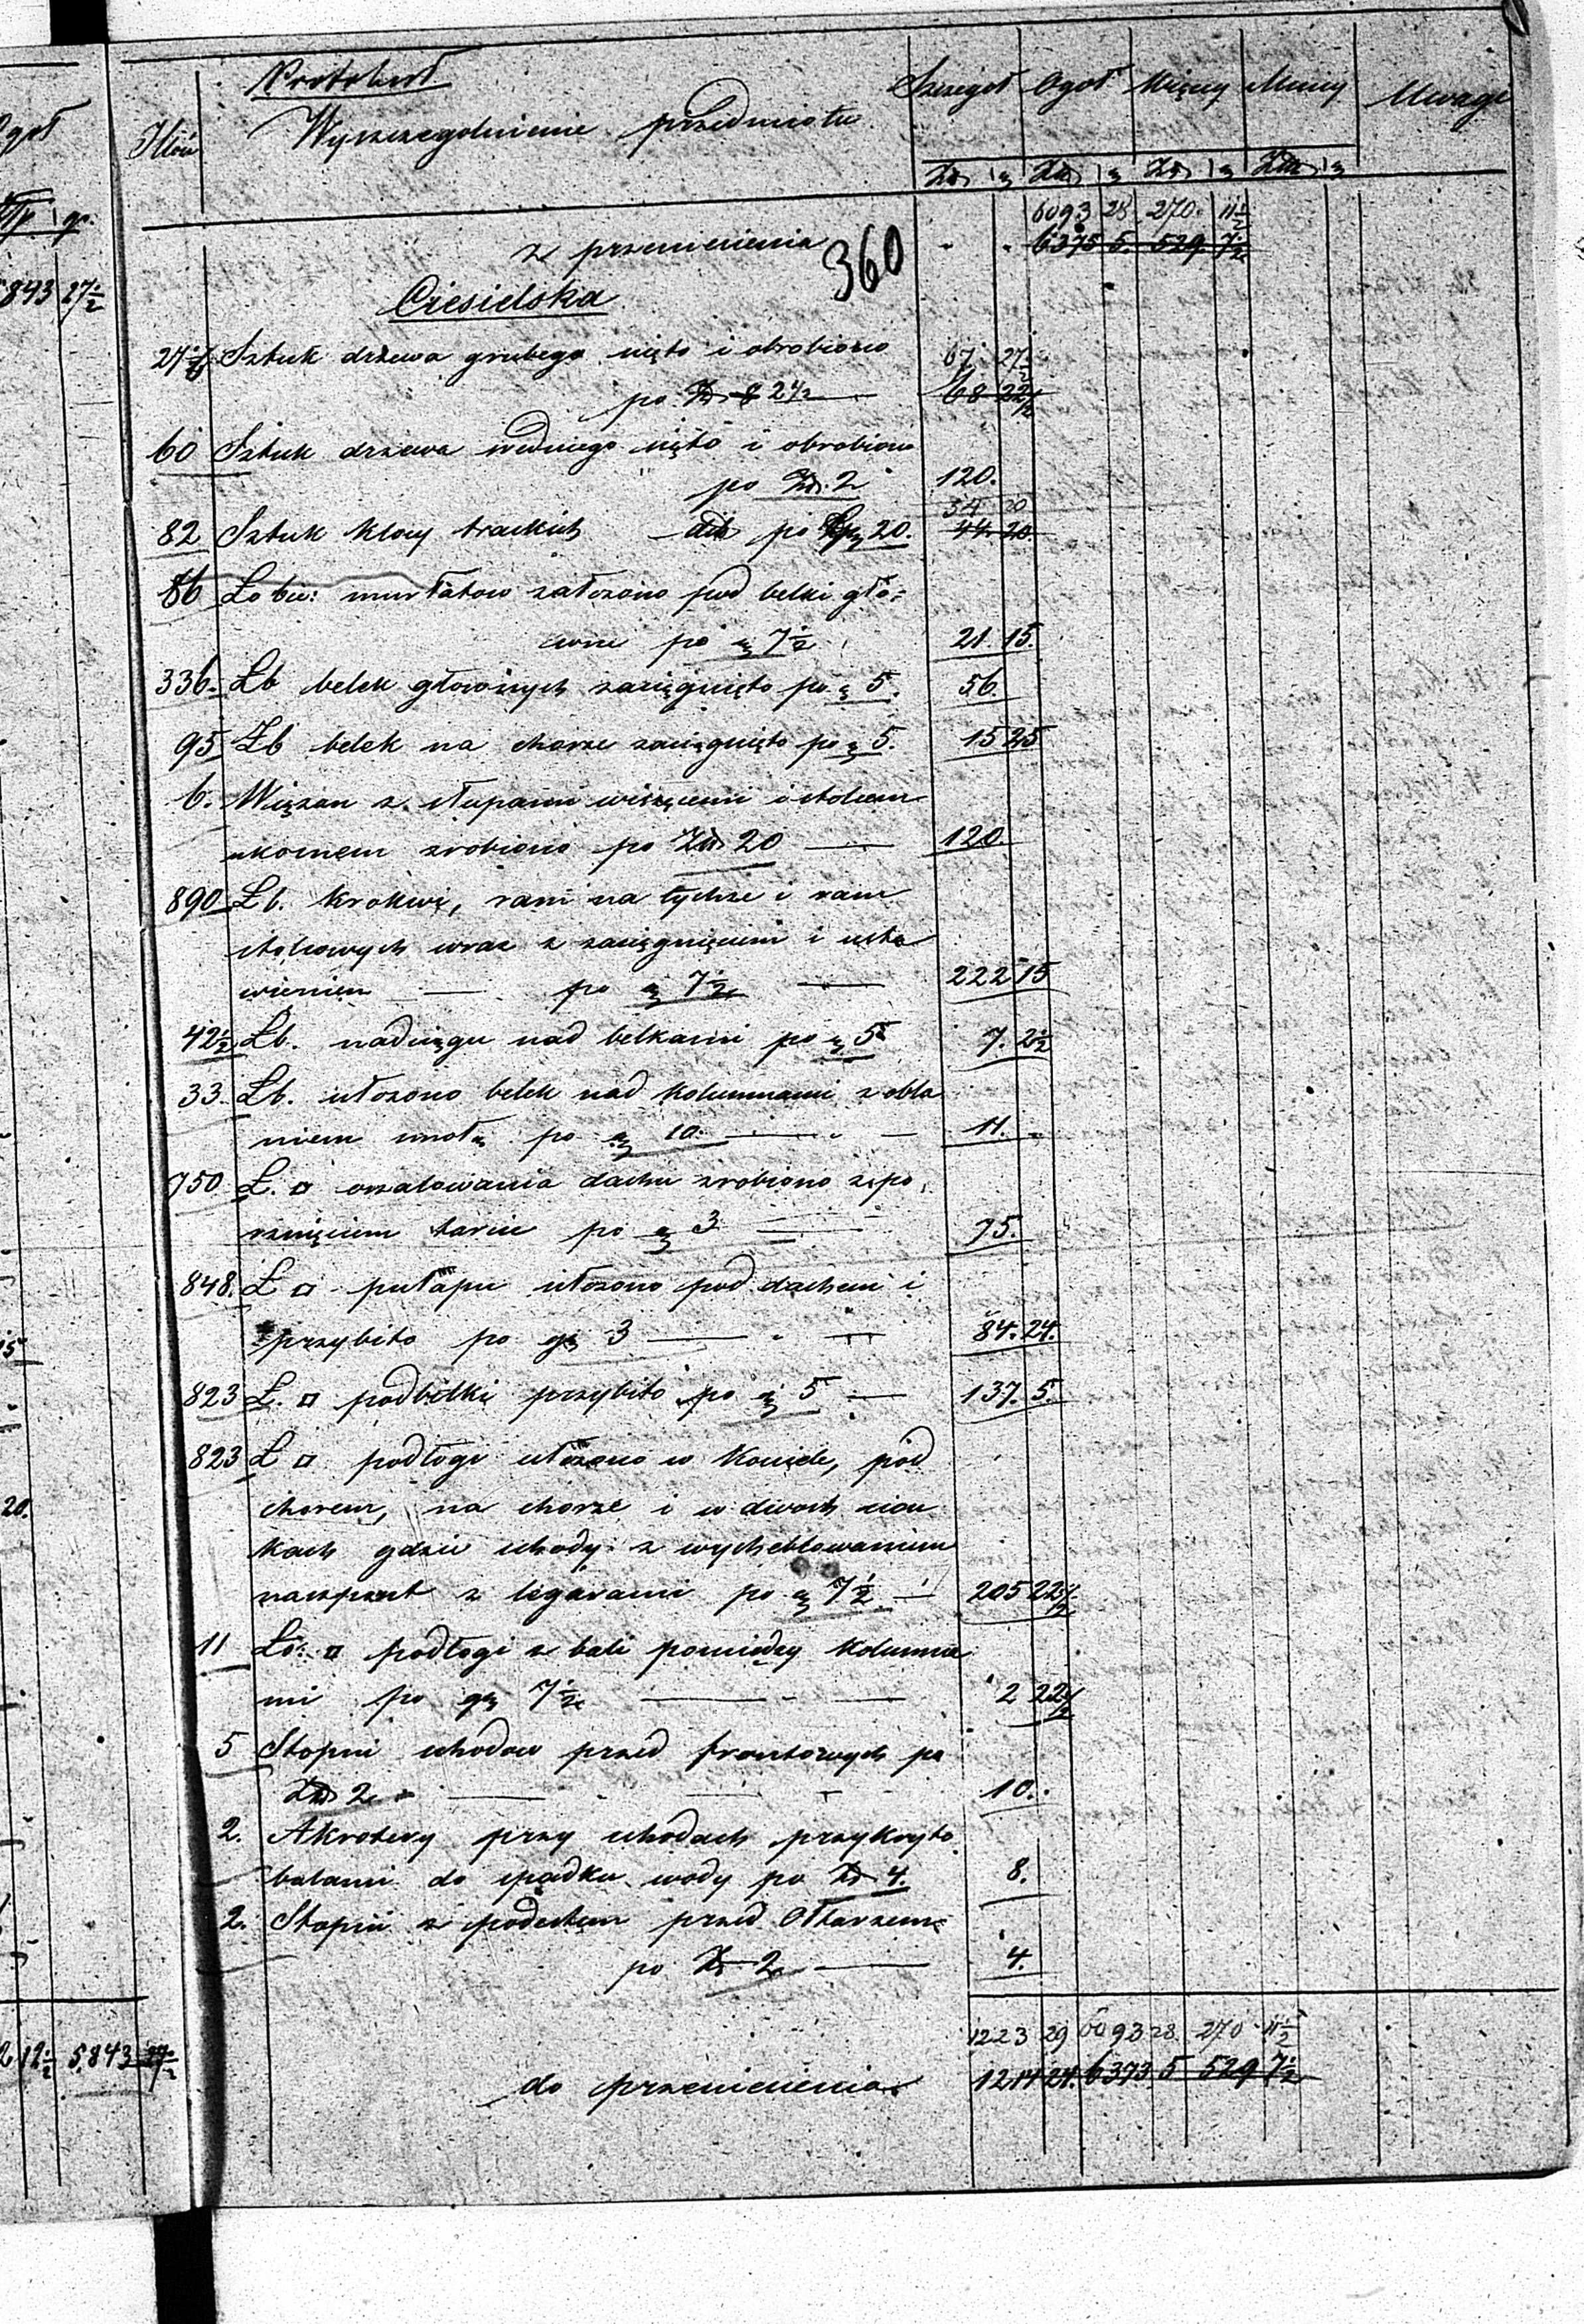 Ogół
Złp gr.
5843 27 1/2
15
20.
12 1/2 5,843 27 1/2
Protokuł
Ilość Wyszczegolnienie przedmiotu Szczegoł Ogoł Więcey Mniey Uwagi
Złp g Złp g Złp g Złp g
6093 28 270 11 1/2
z przeniesienia 6375 5. 529. 7 1/2
360
Ciesielska
Sztuk drzewa grubego cięto i obrobiono 67 27 1/2
po Złp 2 1/2 68 22 1/2
60 Sztuk drzewa średniego cięto i obrobiono
po Złp. 2 120.
54 20
82 Sztuk kłocy trackich po gr 20. 44. 20
86 Ło bie: murłatow załozono pod belki gło=
wne po g 7 1/2 21. 15.
336. Łb belek głownych zaciągnięto po g 5. 56.
95 Łb belek na chorze zaciągnięto po g 5. 15 25
6. Wiązan z słupami wiszącemi i stolcem
zrobiono po Złp 20 120.
890 Łb. Krokwi, ram na tychże i ram
stolcowych wraz z zaciągnięciem i usta
wieniem po g 7 1/2 222 15
42 1/2 Łb. nadciągu nad belkami po g 5 7. 2 1/2
33. Łb. ułozono belek nad kolumnami z obla
niem smołą po g 10. 11.
750 Ł. □ oszalowania dachu zrobiono z po
rznięciem tarcic po g 3 75.
848. Ł □ pułapu ułozono pod dachem i
przybito po g 3 84. 24.
823 Ł. □ podbitki przybito po g 5 137. 5.
823 Ł □ podłogi ułozono w Kosciele, pod
chorem, na chorze i w dwoch sion
kach gdzie schody z wycheblowaniem
naszpunt z legarami po g 7 1/2 205 22 1/2
11 Ło: □ podłogi z bali pomiędzy Kolumna
mi po g 7 1/2 2 22 1/2
5 Stopni schodow przed frontowych po
Złp 2 10.
2. Akrotery przy schodach przykryto
balami do spadku wody po Zł 4. 8.
2. Stopni z podestem przed Ołtarzem
po Zł 2 4.
1223 29 6093 28 270 11 1/2
do przeniesienia 1214 24. 6373. 5 529 7 1/2